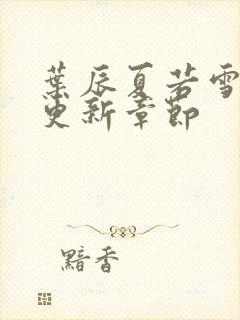 葉辰夏若雪
更新章節
黯香